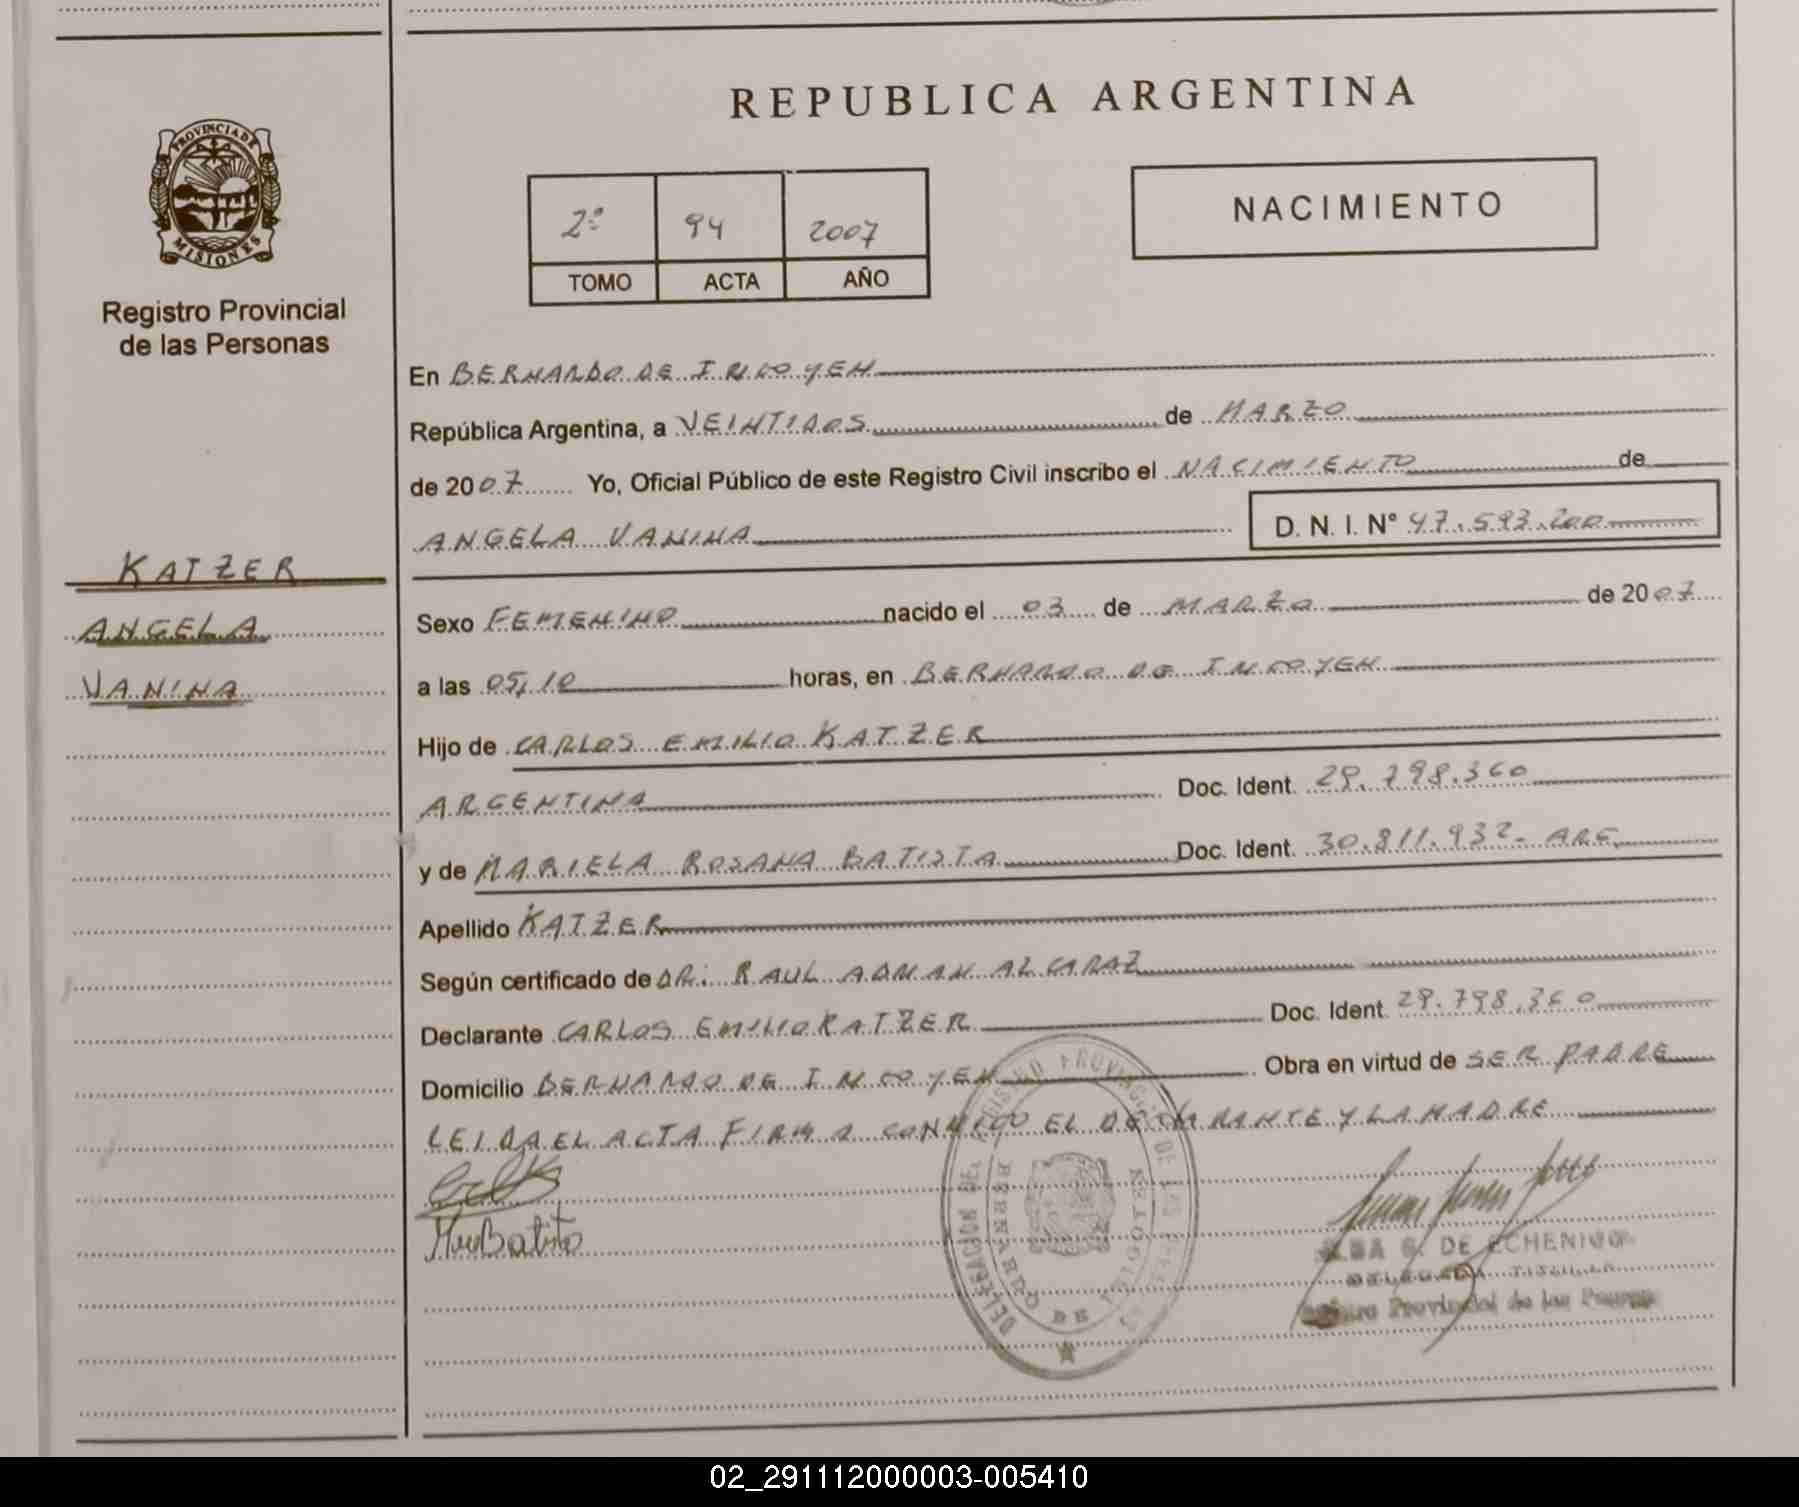 REPUBLICA ARGENTINA
PROVINCIA DE
MISIONES
Registro Provincial
de las Personas
2º 94 2007
TOMO ACTA AÑO
NACIMIENTO
En BERNARDO DE IRIGOYEN
República Argentina, a VEINTIDOS de MARZO
de 2007 Yo, Oficial Público de este Registro Civil inscribo el NACIMIENTO de
ANGELA VANINA D. N. I. Nº 47.593.200
KATZER
ANGELA
VANINA
Sexo FEMENINO nacido el 03 de MARZO de 2007
a las 05,10 horas, en BERNARDO DE IRIGOYEN
Hijo de CARLOS EMILIO KATZER
ARGENTINA Doc. Ident. 29.798.360
y de MARIELA ROSANA BATISTA Doc. Ident. 30.811.932- ARG.
Apellido KATZER
Según certificado de DR. RAUL ADRIAN ALCARAZ
Declarante CARLOS EMILIO KATZER Doc. Ident. 29.798.360
Domicilio BERNARDO DE IRIGOYEN Obra en virtud de SER PADRE
LEIDA EL ACTA FIRMA CONMIGO EL DECLARANTE Y LA MADRE
DELEGACION DEL REGISTRO PROVINCIAL DE LAS PERSONAS
BERNARDO DE IRIGOYEN
DE ECHENIQUE
DELEGADA TITULAR
Registro Provincial de las Personas
02_291112000003-005410